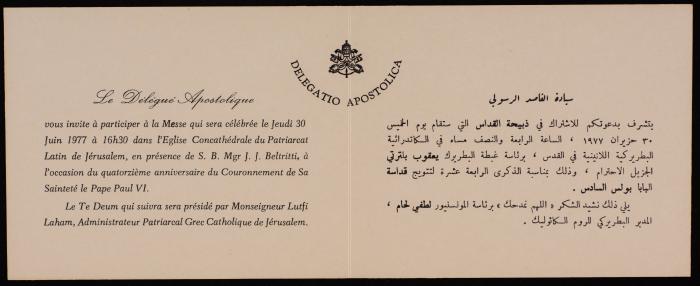 DELEGATIO APOSTOLICA
Le Délégué Apostolique
vous invite à participer à la Messe qui sera célébrée le Jeudi 30
Juin 1977 à 16h30 dans l'Eglise Concathédrale du Patriarcat
Latin de Jérusalem, en présence de S. B. Mgr J. J. Beltritti, à
l'occasion du quatorzième anniversaire du Couronnement de Sa
Sainteté le Pape Paul VI.
Le Te Deum qui suivra sera présidé par Monseigneur Lutfi
Laham, Administrateur Patriarcal Grec Catholique de Jérusalem.
سيادة القاصد الرسولي
يتشرف بدعوتكم للاشتراك في ذبيحة القداس التي ستقام يوم الخميس
٣٠ حزيران ١٩٧٧ ، الساعة الرابعة والنصف مساء في الكاتدرائية
البطريركية اللاتينية في القدس ، برئاسة غبطة البطريرك يعقوب بلترتي
الجزيل الاحترام ، وذلك بمناسبة الذكرى الرابعة عشرة لتتويج قداسة
البابا بولس السادس .
يلي ذلك نشيد الشكر « اللهم نمدحك » برئاسة المونسنيور لطفي لحام ،
المدبر البطريركي للروم الكاثوليك .